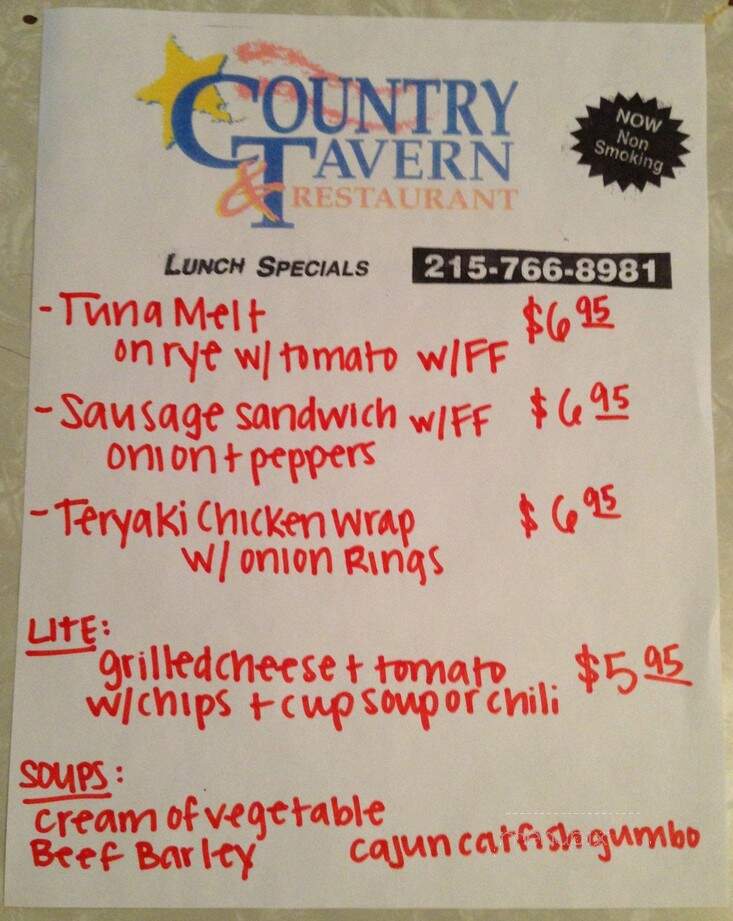 COUNTRY
TAVERN
& RESTAURANT
NOW
Non
Smoking
LUNCH SPECIALS 215-766-8981
- Tuna Melt $6 95
on rye w/ tomato w/FF
- Sausage sandwich w/FF $6 95
onion + peppers
- Teryaki Chicken Wrap $6 95
w/ onion Rings
LITE:
grilled cheese + tomato $5 95
w/chips + cup soup or chili
SOUPS:
cream of vegetable
Beef Barley cajun catfish gumbo